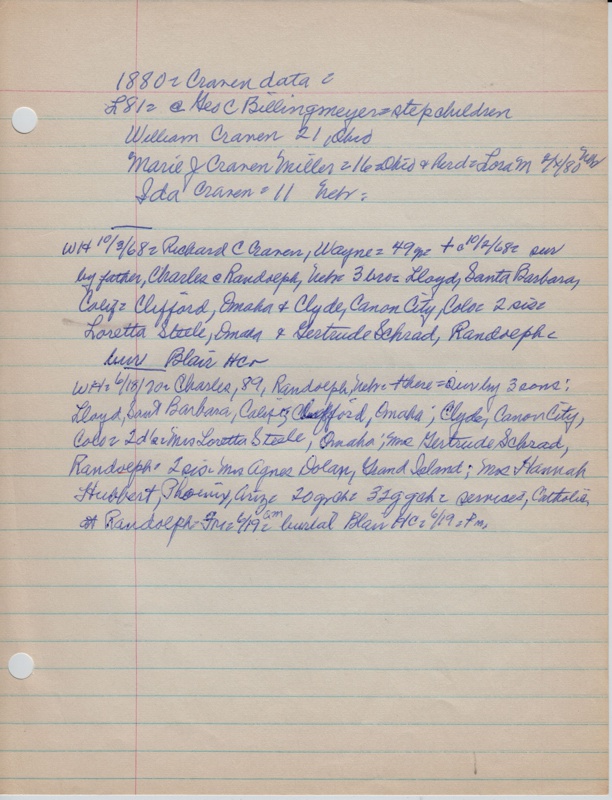 1880 = Craven data =
L81 = @ Geo C Billingmeyer = stepchildren
William Craven 21, Ohio
Marie J Craven Miller = 16 = Ohio & = Lora M Nebr
Ida Craven = 11 Nebr =
WH 10/3/68 = Richard C Craven, Wayne = 49 + @ 10/2/68 = sur
by father, Charles @ Randolph, Nebr = 3 bro = Lloyd, Santa Barbara,
Calif = Clifford, Omaha & Clyde, Canon City, Colo = 2 sis =
Loretta Steele, Omaha & Gertrude Schrad, Randolph =
bur Blair HC
WH = 6/18/70 = Charles, 89, Randolph, Nebr = there = sur by 3 sons;
Lloyd, Sant Barbara, Calif; Clifford, Omaha; Clyde, Canon City,
Colo = 2 d's = Mrs Loretta Steele, Omaha; Mrs Gertrude Schrad,
Randolph = 2 sis = Mrs Agnes Dolan, Grand Island; Mrs Hannah
Hubbert, Phoenix, Ariz 20 grch = 32 ggch = services, Catholic
at Randolph Fri = 6/19 = am burial Blair HC = 6/19 = Pm,